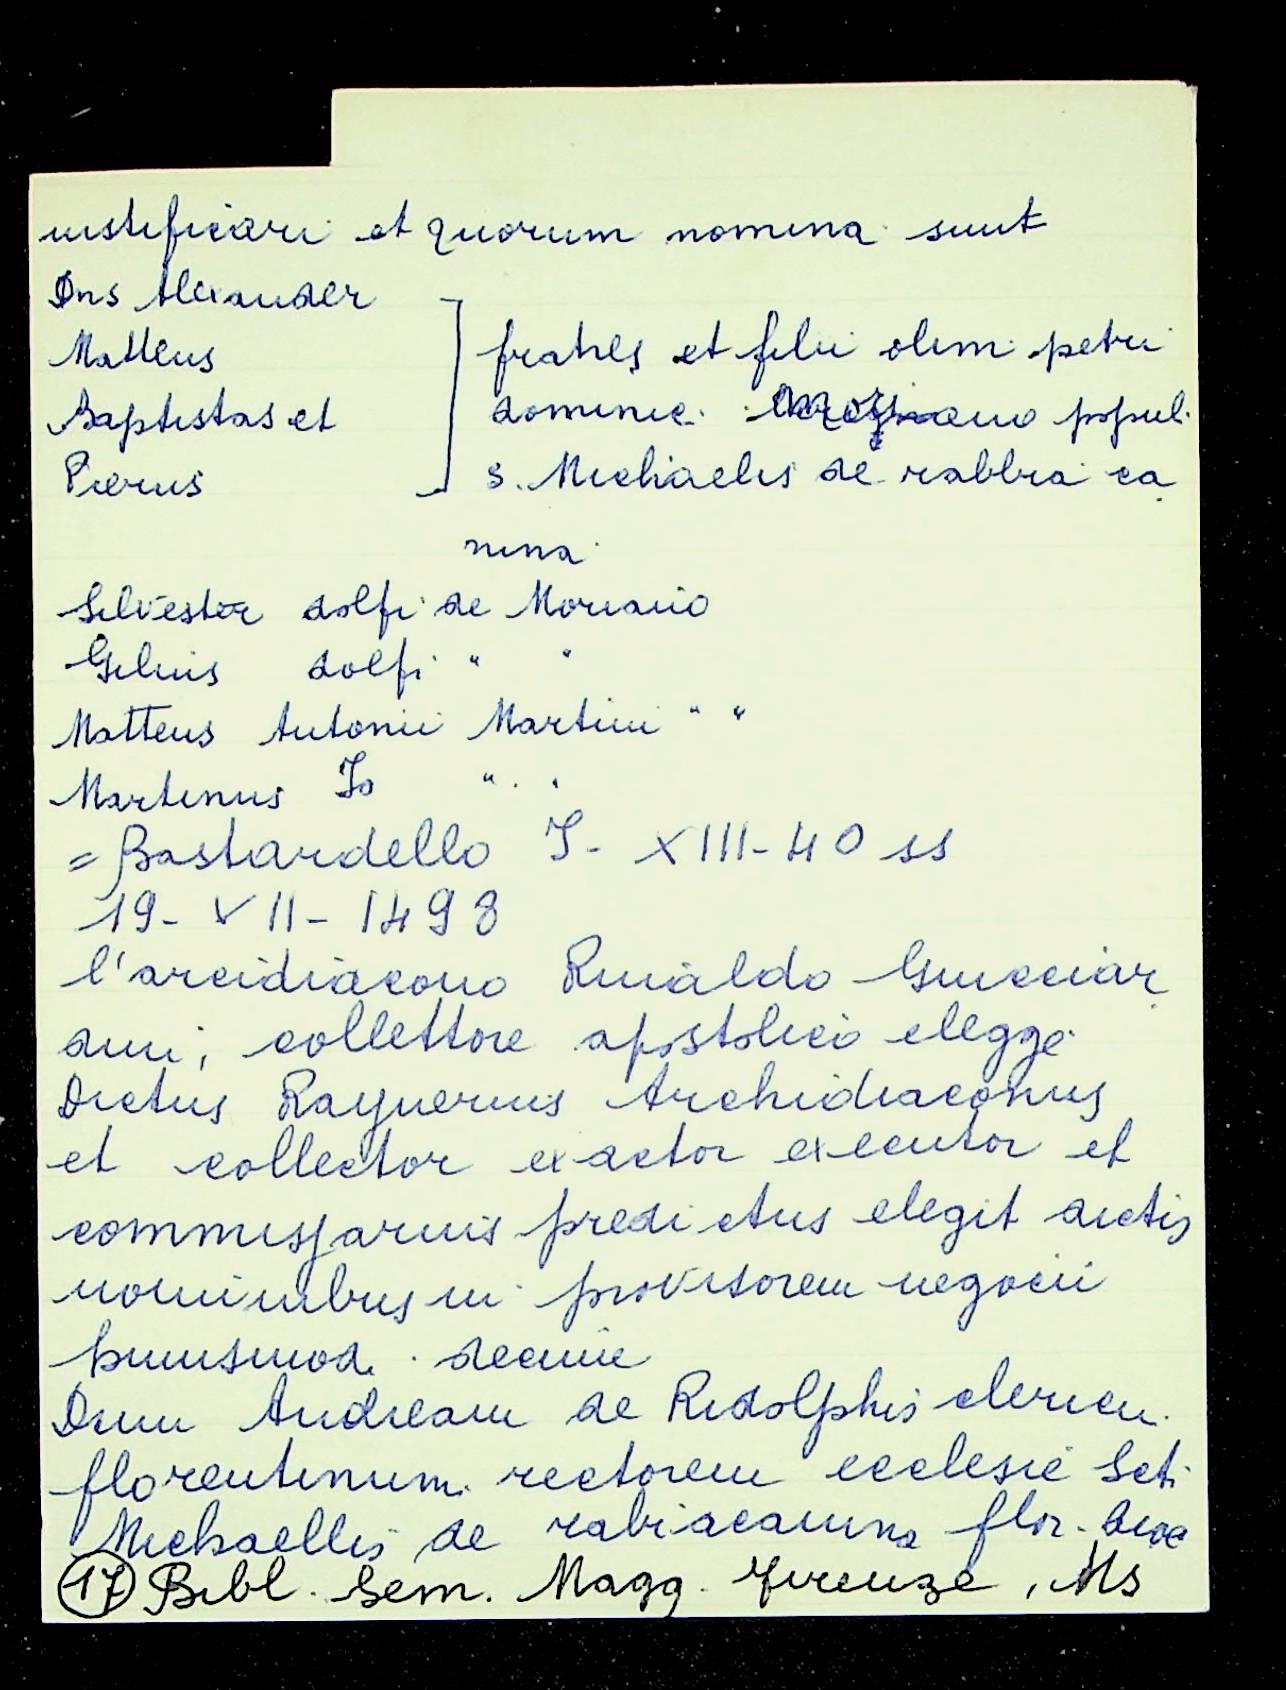 iustificari et quorum nomina sunt
Dns Alexander
Matteus
Baptistas et
Pierus
fratres et filii olim petri
dominic. popul.
S. Michaelis de rabbia ca
nina
Silvester dolfi de Moriano
Gilius dolfi " "
Matteus Antonii Martini " "
Martinus Jo " "
= Bastardello I - XIII - 40 ss
19 - VII - 1498
l'arcidiacono Rinaldo Gucciar
dini, collettore apostolico elegge
Dictus Raynerius Archidiaconus
et collector exactor executor et
commissarius predictus elegit dictis
nominibus in provisorem negocii
huiusmod. decime
Dnm Andream de Ridolphis clericu.
florentinum. rectorem ecclesie Scti
Michaellis de rabiacanina flor. dioc
(17) Bibl. Sem. Magg. Firenze, Ms